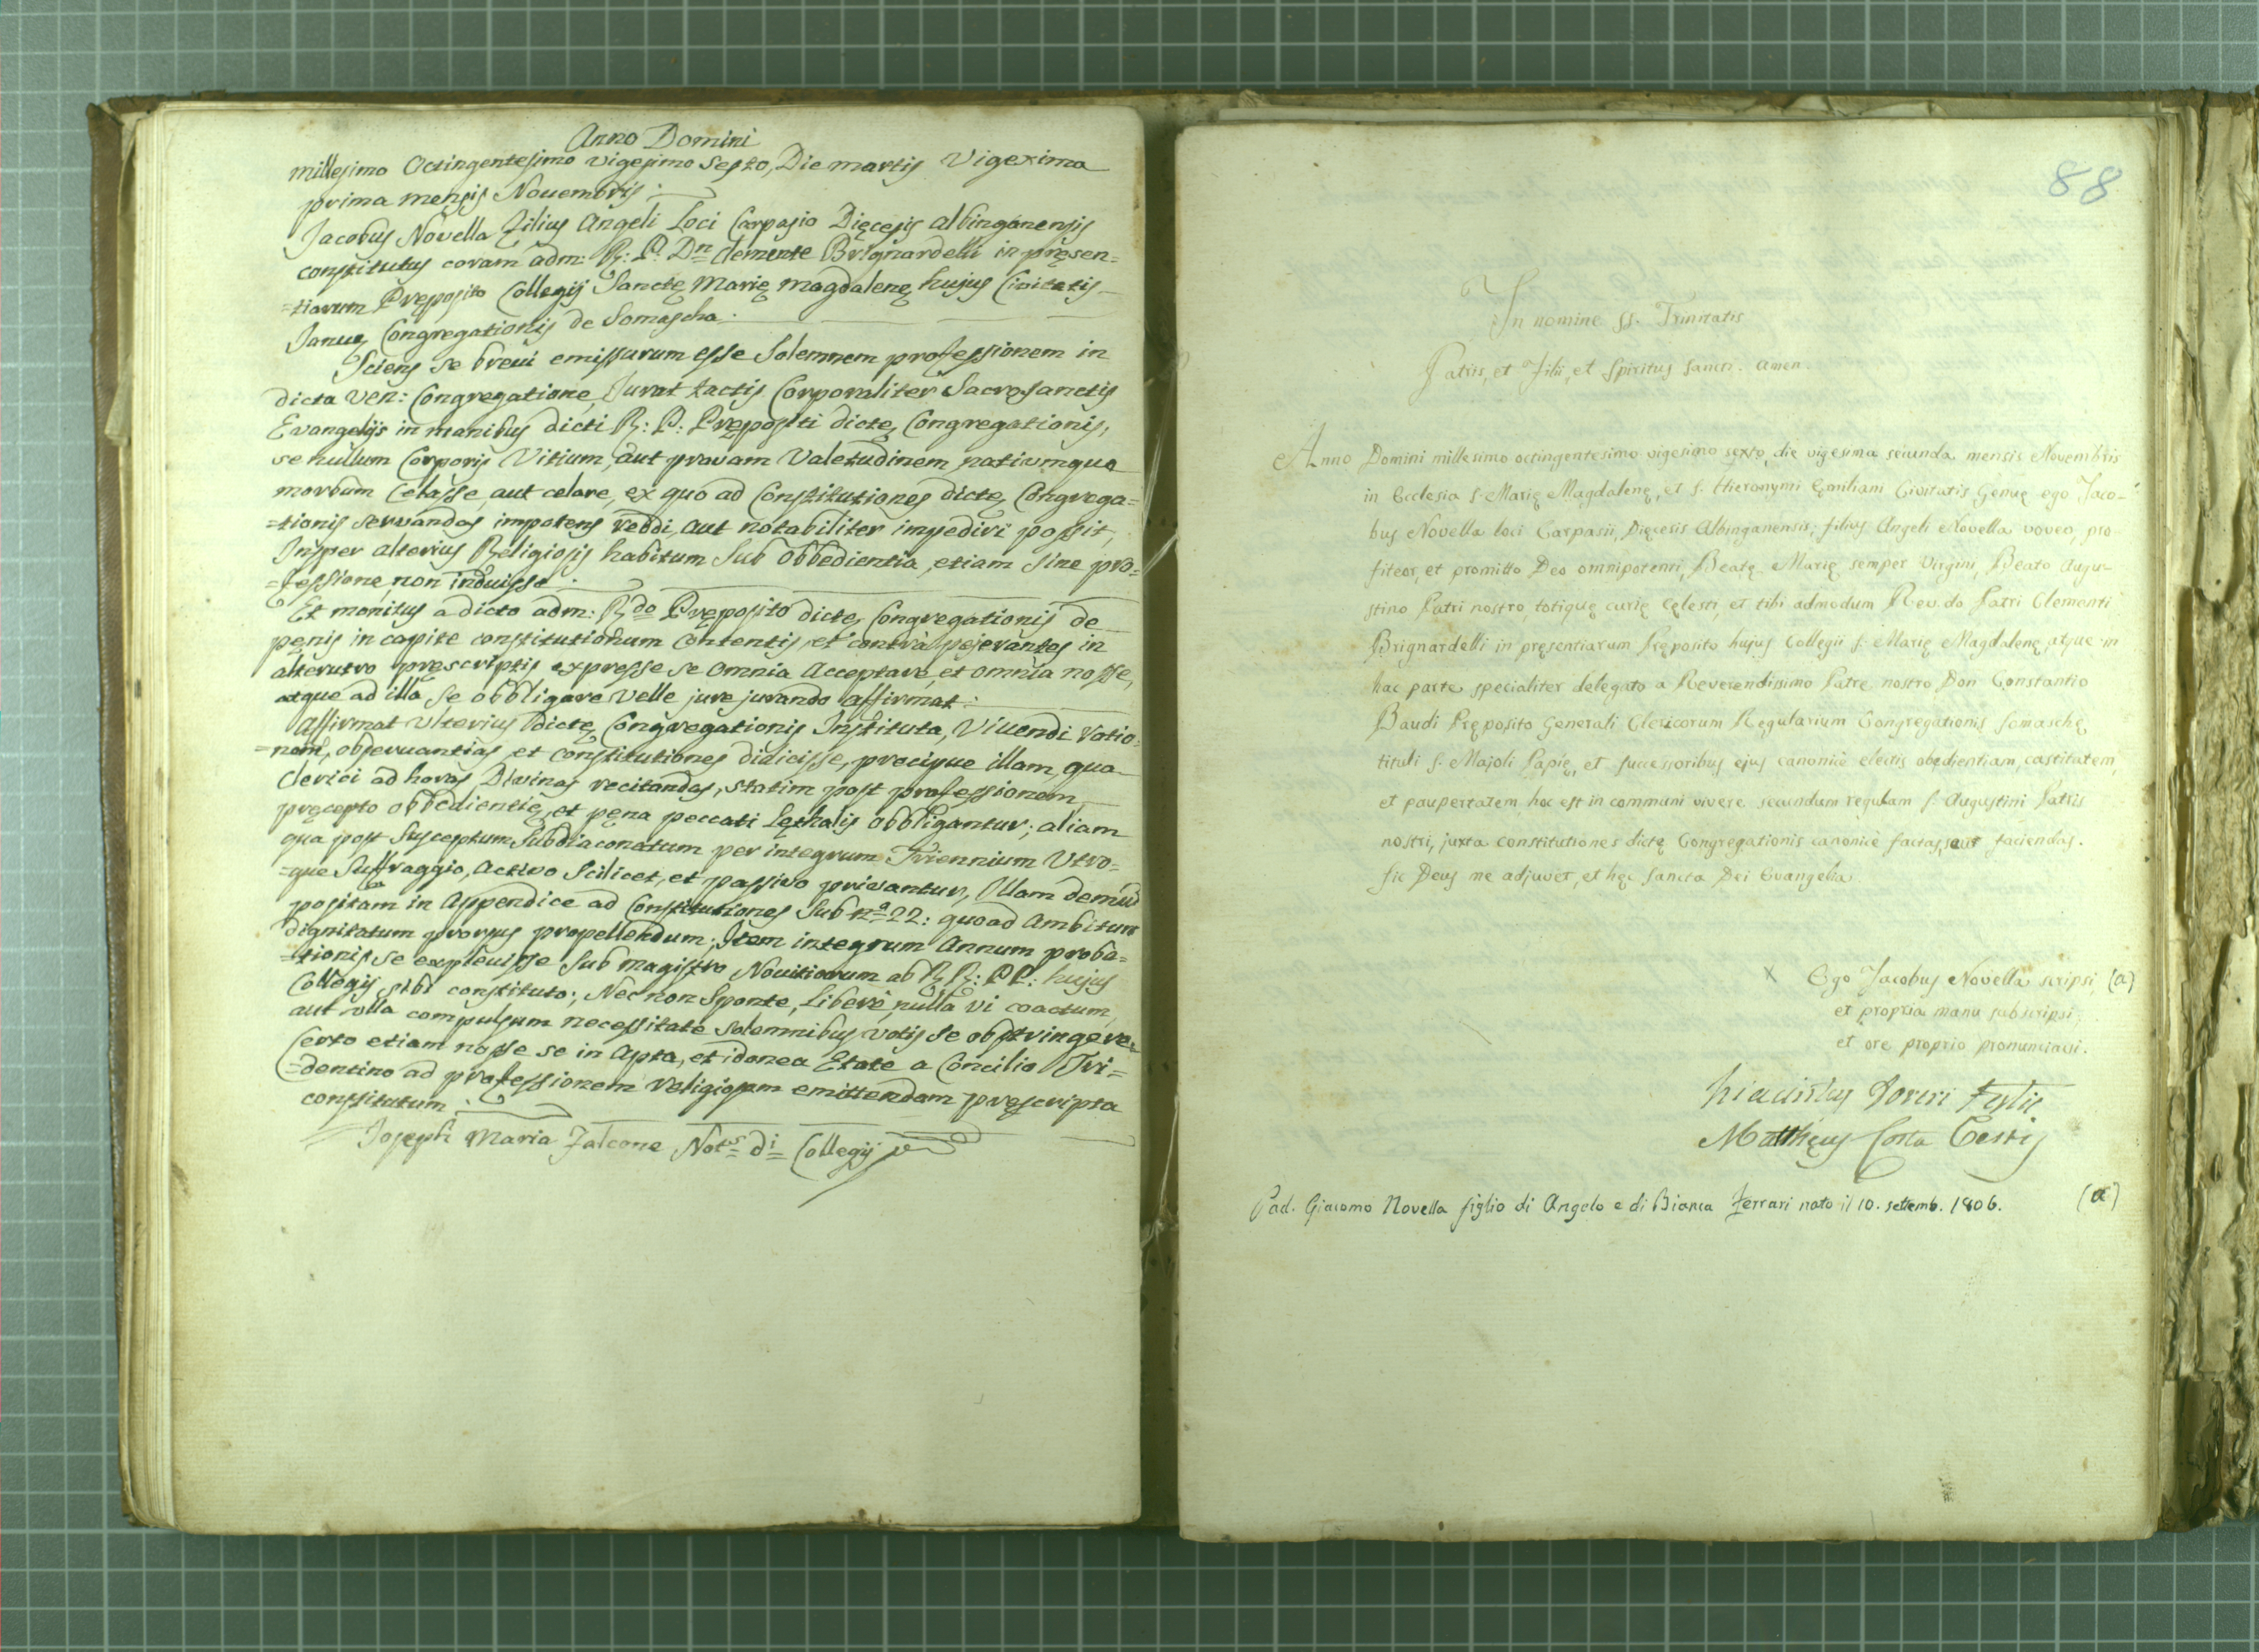 Anno Domini
millesimo Octingentesimo vigesimo Sesto, Die martis Vigexima
prima mensis Nouembris.
Jacobus Novella Filius Angeli Loci Carpasio Dięcesis Albinganensis
constitutus coram adm: R: P. Dn Clemente Brignardelli in pręsen=
=tiarum Pręposito Collegij Sanctę Marię Magdalenę hujus Civitatis
Januę Congregationis de Somascha.
Sciens se breui emissurum esse Solemnem professionem in
dicta Ven: Congregatione, Jurat tactis Corporaliter Sacrosanctis
Evangelijs in manibus dicti R: P: Prępositi dictę Congregationis,
se nullum Corporis Vitium, aut pravam Valetudinem nativmque
morbum Celasse, aut celare, ex quo ad Constitutiones dictę Congrega=
=tionis servandas impotens reddi, aut notabiliter impediri possit,
Insper alterius Religiosis habitum Sub Obbedientia, etiam sine pro=
=fessione, non induisse.
Et monitus a dicto adm: Rdo Pręposito dictę Congregationis de
pęnis in capite constitutionum Contentis, et contrà pejerantes in
alterutro pręscriptis expresse se omnia Acceptare, et omnia nosse,
atque ad illa se obbligare Velle jure jurando affirmat:
Affirmat Vlterius dictę Congregationis Instituta, Viuendi ratio=
=nem, obseruantias et constitutiones didicisse, precipue illam, qua
Clerici ad horas Divinas recitandas, statim post professionem
pręcepto obbedientię, et pęna peccati Lęthalis obbligantur; aliam
qua post Susceptum Subdiaconatum per integrum Triennium Vtro=
=que Suffraggio, Activo Scilicet, et passivo privantur, Illam demùm
positam in Appendice ad Constitutiones Sub nº 22: quoad Ambitum
dignitatum prorsus propellendum; Item integrum Annum proba=
=tionis se expleuisse Sub Magistro Nouitiorum ab RR: PP: hujus
Collegij sibi constituto; Nec non Sponte, Liberè, nulla vi coactum,
aut vlla compulsum necessitate solemnibus votis se obstringere.
Certo etiam nosse se in Apta, et idonea Etate a Concilio Tri=
=dentino ad professionem religiosam emittendam pręscripta
constitutum.
Joseph Maria Falcone Nots di Collegij
88
In nomine SS. Trinitatis
Patris, et Filii, et Spiritus Sancti. Amen.
Anno Domini millesimo octingentesimo vigesimo sexto, die vigesima secunda mensis Novembris
in Ecclesia S. Marię Magdalenę, et S. Hieronymi Ęmiliani Civitatis Genuę ego Jaco-
bus Novella loci Carpasii, Dięcesis Albinganensis, filius Angeli Novella voveo, pro
fiteor, et promitto Deo omnipotenti, Beatę Marię semper Virgini, Beato Augu-
stino Patri nostro, totiquę curię cęlesti, et tibi admodum Rev.do Patri Clementi
Brignardelli in pręsentiarum Pręposito hujus Collegii S. Marię Magdalenę, atque in
hac parte specialiter delegato a Reverendissimo Patre nostro Don Constantio
Baudi Pręposito Generali Clericorum Regularium Congregationis Somaschę
tituli S. Majoli Papię, et successoribus ejus canonicè electis obędientiam, castitatem,
et paupertatem hoc est in communi vivere secundum regulam S. Augustini Patris
nostri, juxta constitutiones dictę Congregationis canonicè factas, aut faciendas.
Sic Deus me adjuvet, et hęc Sancta Dei Evangelia
x Ego Jacobus Novella scripsi, (a)
et propria manu subscripsi,
et ore proprio pronunciavi.
Testis
Matthęus Costa Testis
Pad. Giacomo Novella figlio di Angelo e di Bianca Ferrari nato il 10. settemb. 1806. (a)